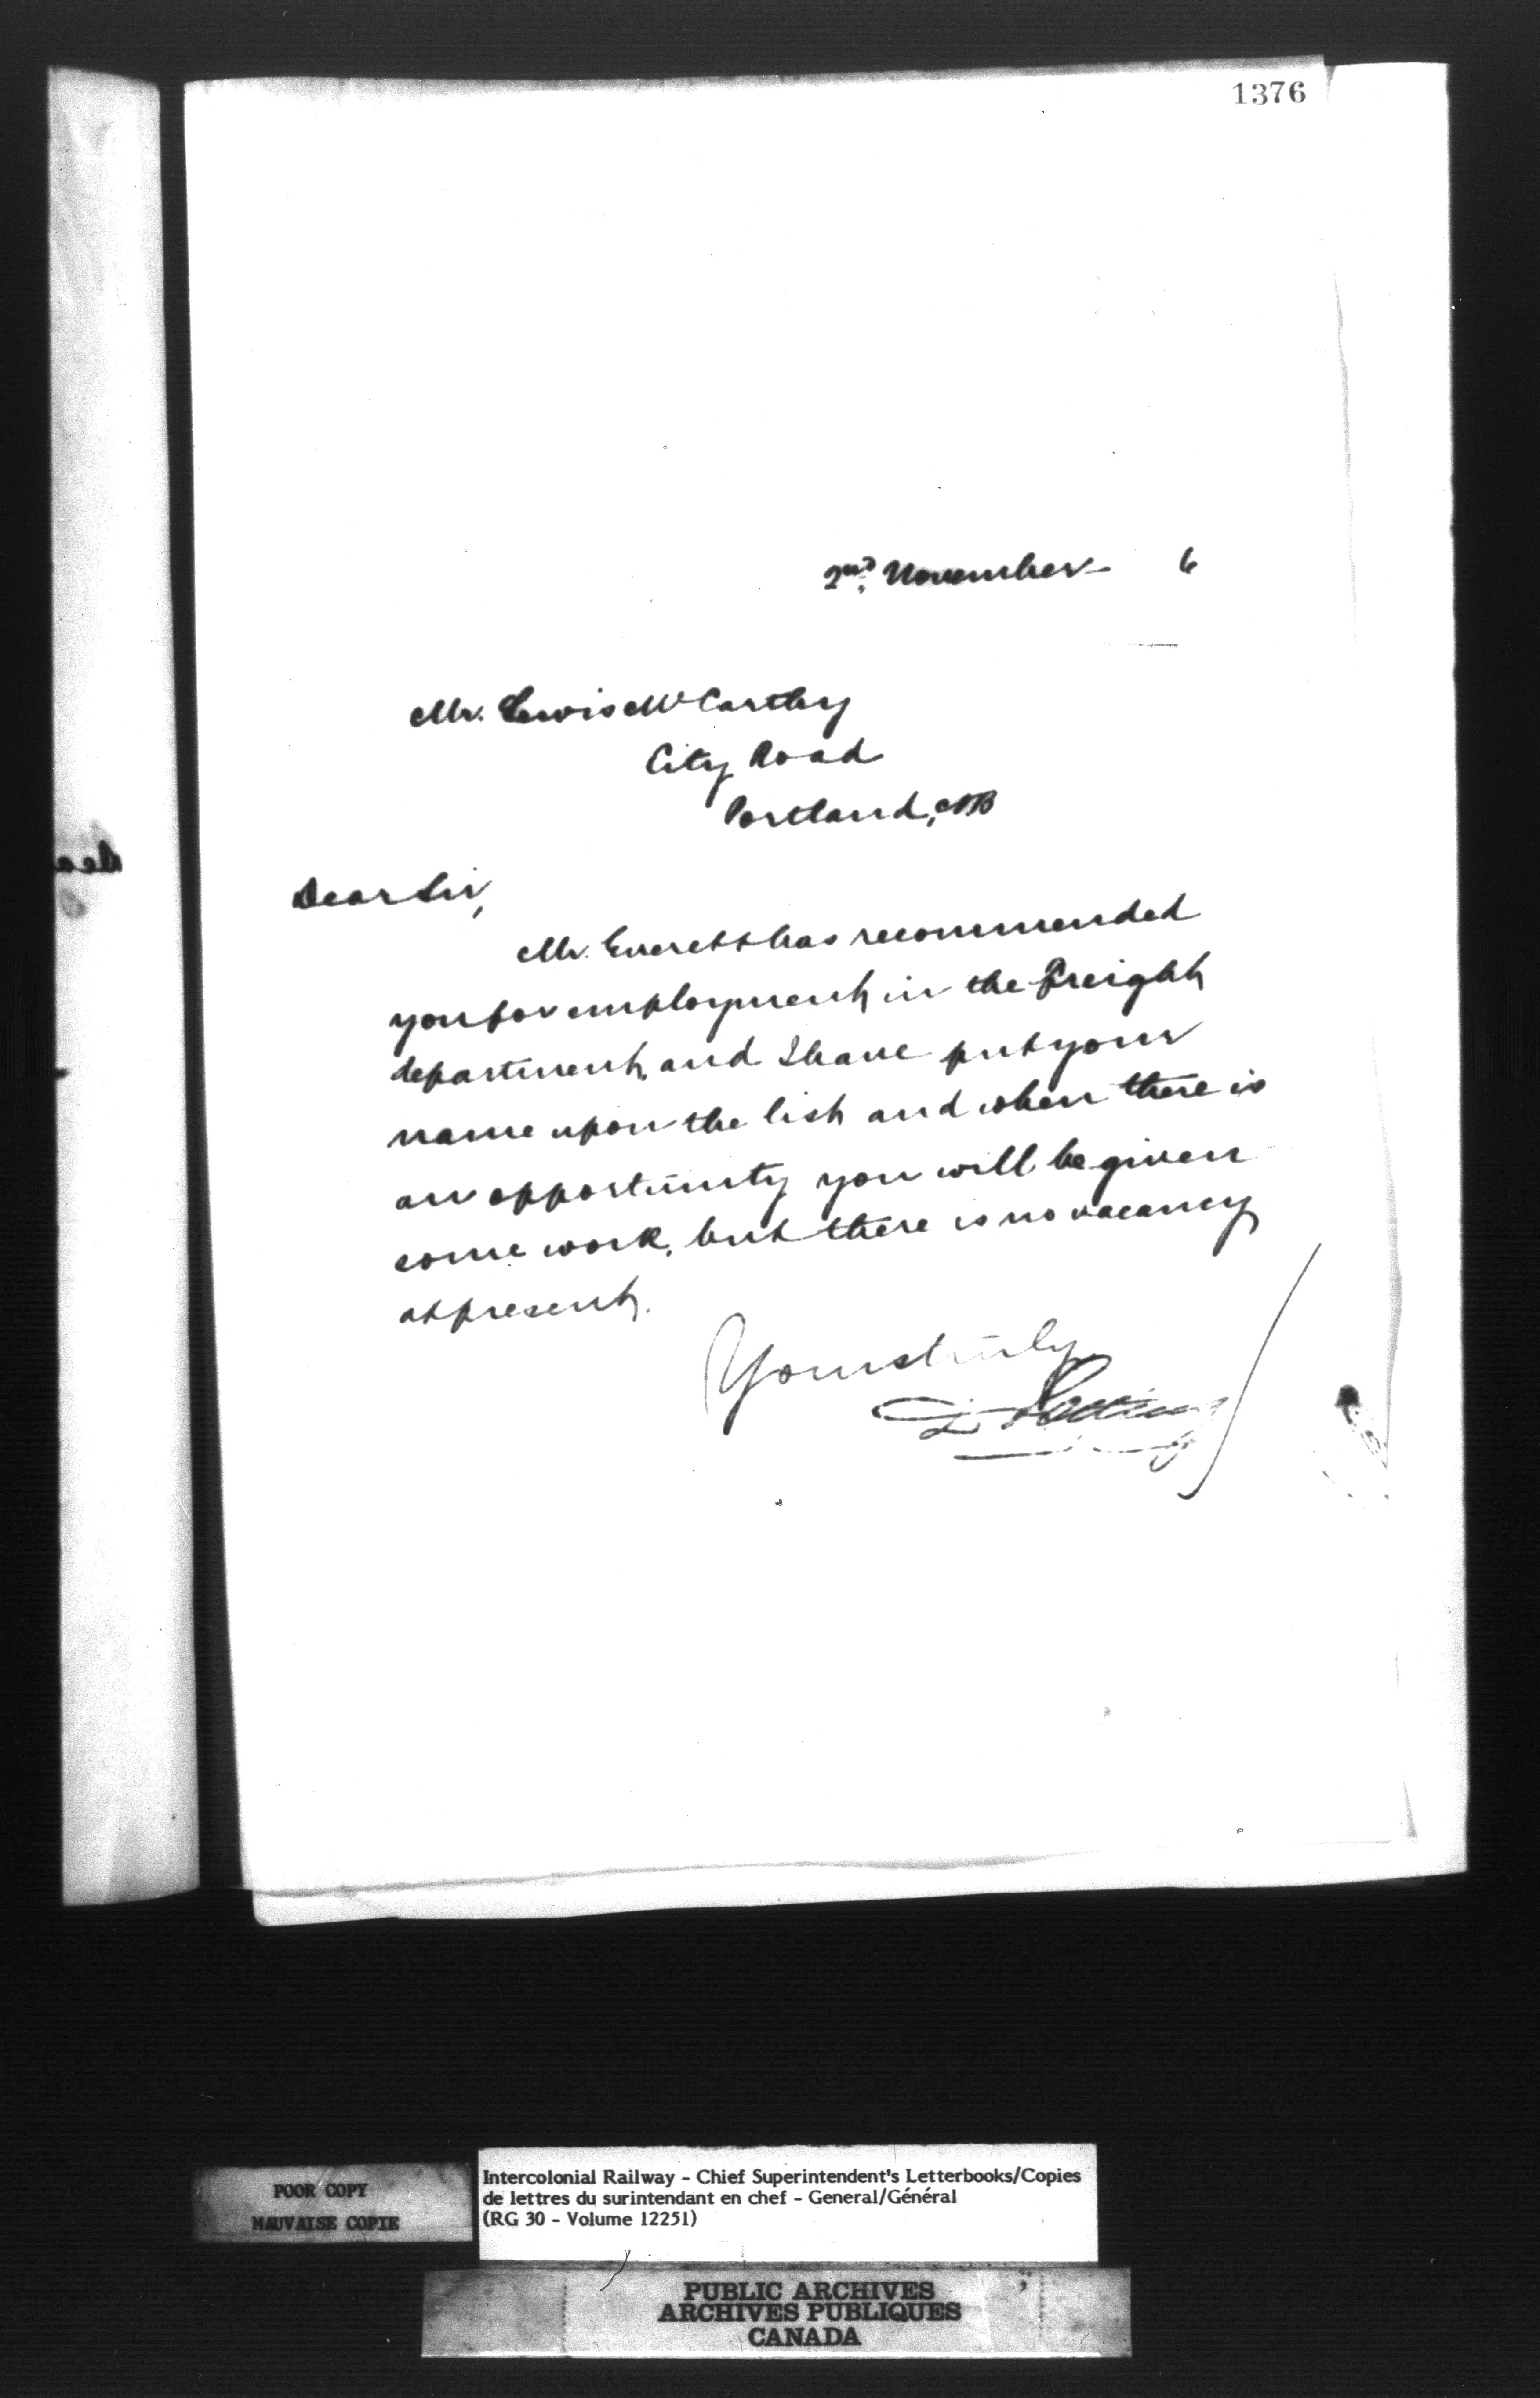 1376
2nd. November 6
Mr. Lewis McCarthy
City Road
Portland, N.B
Dear Sir,
Mr. Everett has recommended
you for employment in the Freight
department, and I have put your
name upon the list and when there is
an opportunity you will be given
some work, but there is no vacancy
at present.
Yours truly
D Pottinger
POOR COPY
MAUVAISE COPIE
Intercolonial Railway - Chief Superintendent's Letterbooks/Copies
de lettres du surintendant en chef - General/Général
(RG 30 - Volume 12251)
PUBLIC ARCHIVES
ARCHIVES PUBLIQUES
CANADA